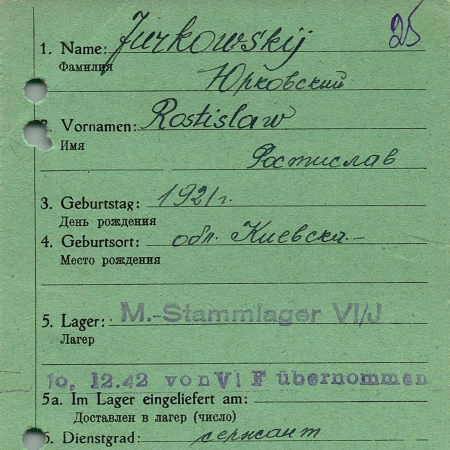 25
1. Name: Jurkowskij
Фамилия
Юрковский
2. Vornamen: Rostislaw
Имя
Ростислав
3. Geburtstag: 1921 г.
День рождения
4. Geburtsort: обл. Киевска
Место рождения
5. Lager: M.-Stammlager VI/J
Лагерь
10. 12.42 von VI F übernommen
5a. Im Lager eingeliefert am:
Доставлен в лагерь (число)
6. Dienstgrad: сержант